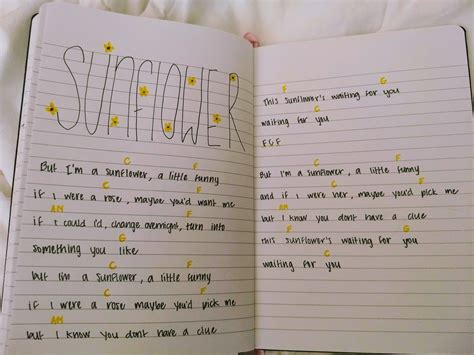 SUNFLOWER
C F
But I'm a sunflower, a little funny
C F
if I were a rose, maybe you'd want me
AM F
if I could I'd, change overnight, turn into
G
something you like
C F
but I'm a sunflower, a little funny
C F
if I were a rose maybe you'd pick me
AM
but I know you don't have a clue
F G
This sunflower's waiting for you
C
waiting for you
F C F
C F
But I'm a sunflower, a little funny
C F
and if I were her, maybe you'd pick me
AM
but I know you don't have a clue
F G
this sunflower's waiting for you
C
waiting for you